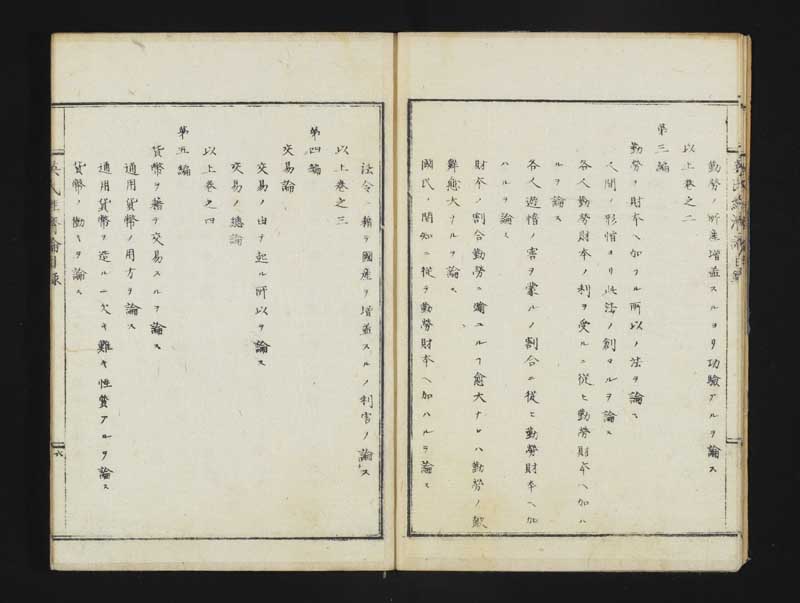 勤勞ノ所産增益スルヨリ功驗アルヲ論ス
以上卷之二
第三編
勤勞ヲ財本ヘ加フル所以ノ法ヲ論ス
人間ノ形情ヨリ此法ノ創マルヲ論ス
各人勤勞財本ノ利ヲ受ルニ從ヒ勤勞財本ヘ加ハ
ルヲ論ス
各人遊惰ノ害ヲ蒙ルノ割合ニ從ヒ勤勞財本ヘ加
ハルヲ論ス
財本ノ割合勤勞ニ
愈大ナレハ勤勞ノ
愈大ナルヲ論ス
國民ノ開知ニ從テ勤勞財本ヘ加ハルヲ論ス
法令ニ賴テ國產ヲ增益スルノ利害ノ論ス
以上卷之三
第四編
交易論
交易ノ由テ起ル所以ヲ論ス
交易ノ總論
以上卷之四
第五編
貨幣ヲ藉テ交易スルヲ論ス
通用貨幣ノ用方ヲ論ス
通用貨幣ヲ造ル一欠キ難キ性質アルヲ論ス
貨幣ノ働キヲ論ス
英氏經濟論目錄
六